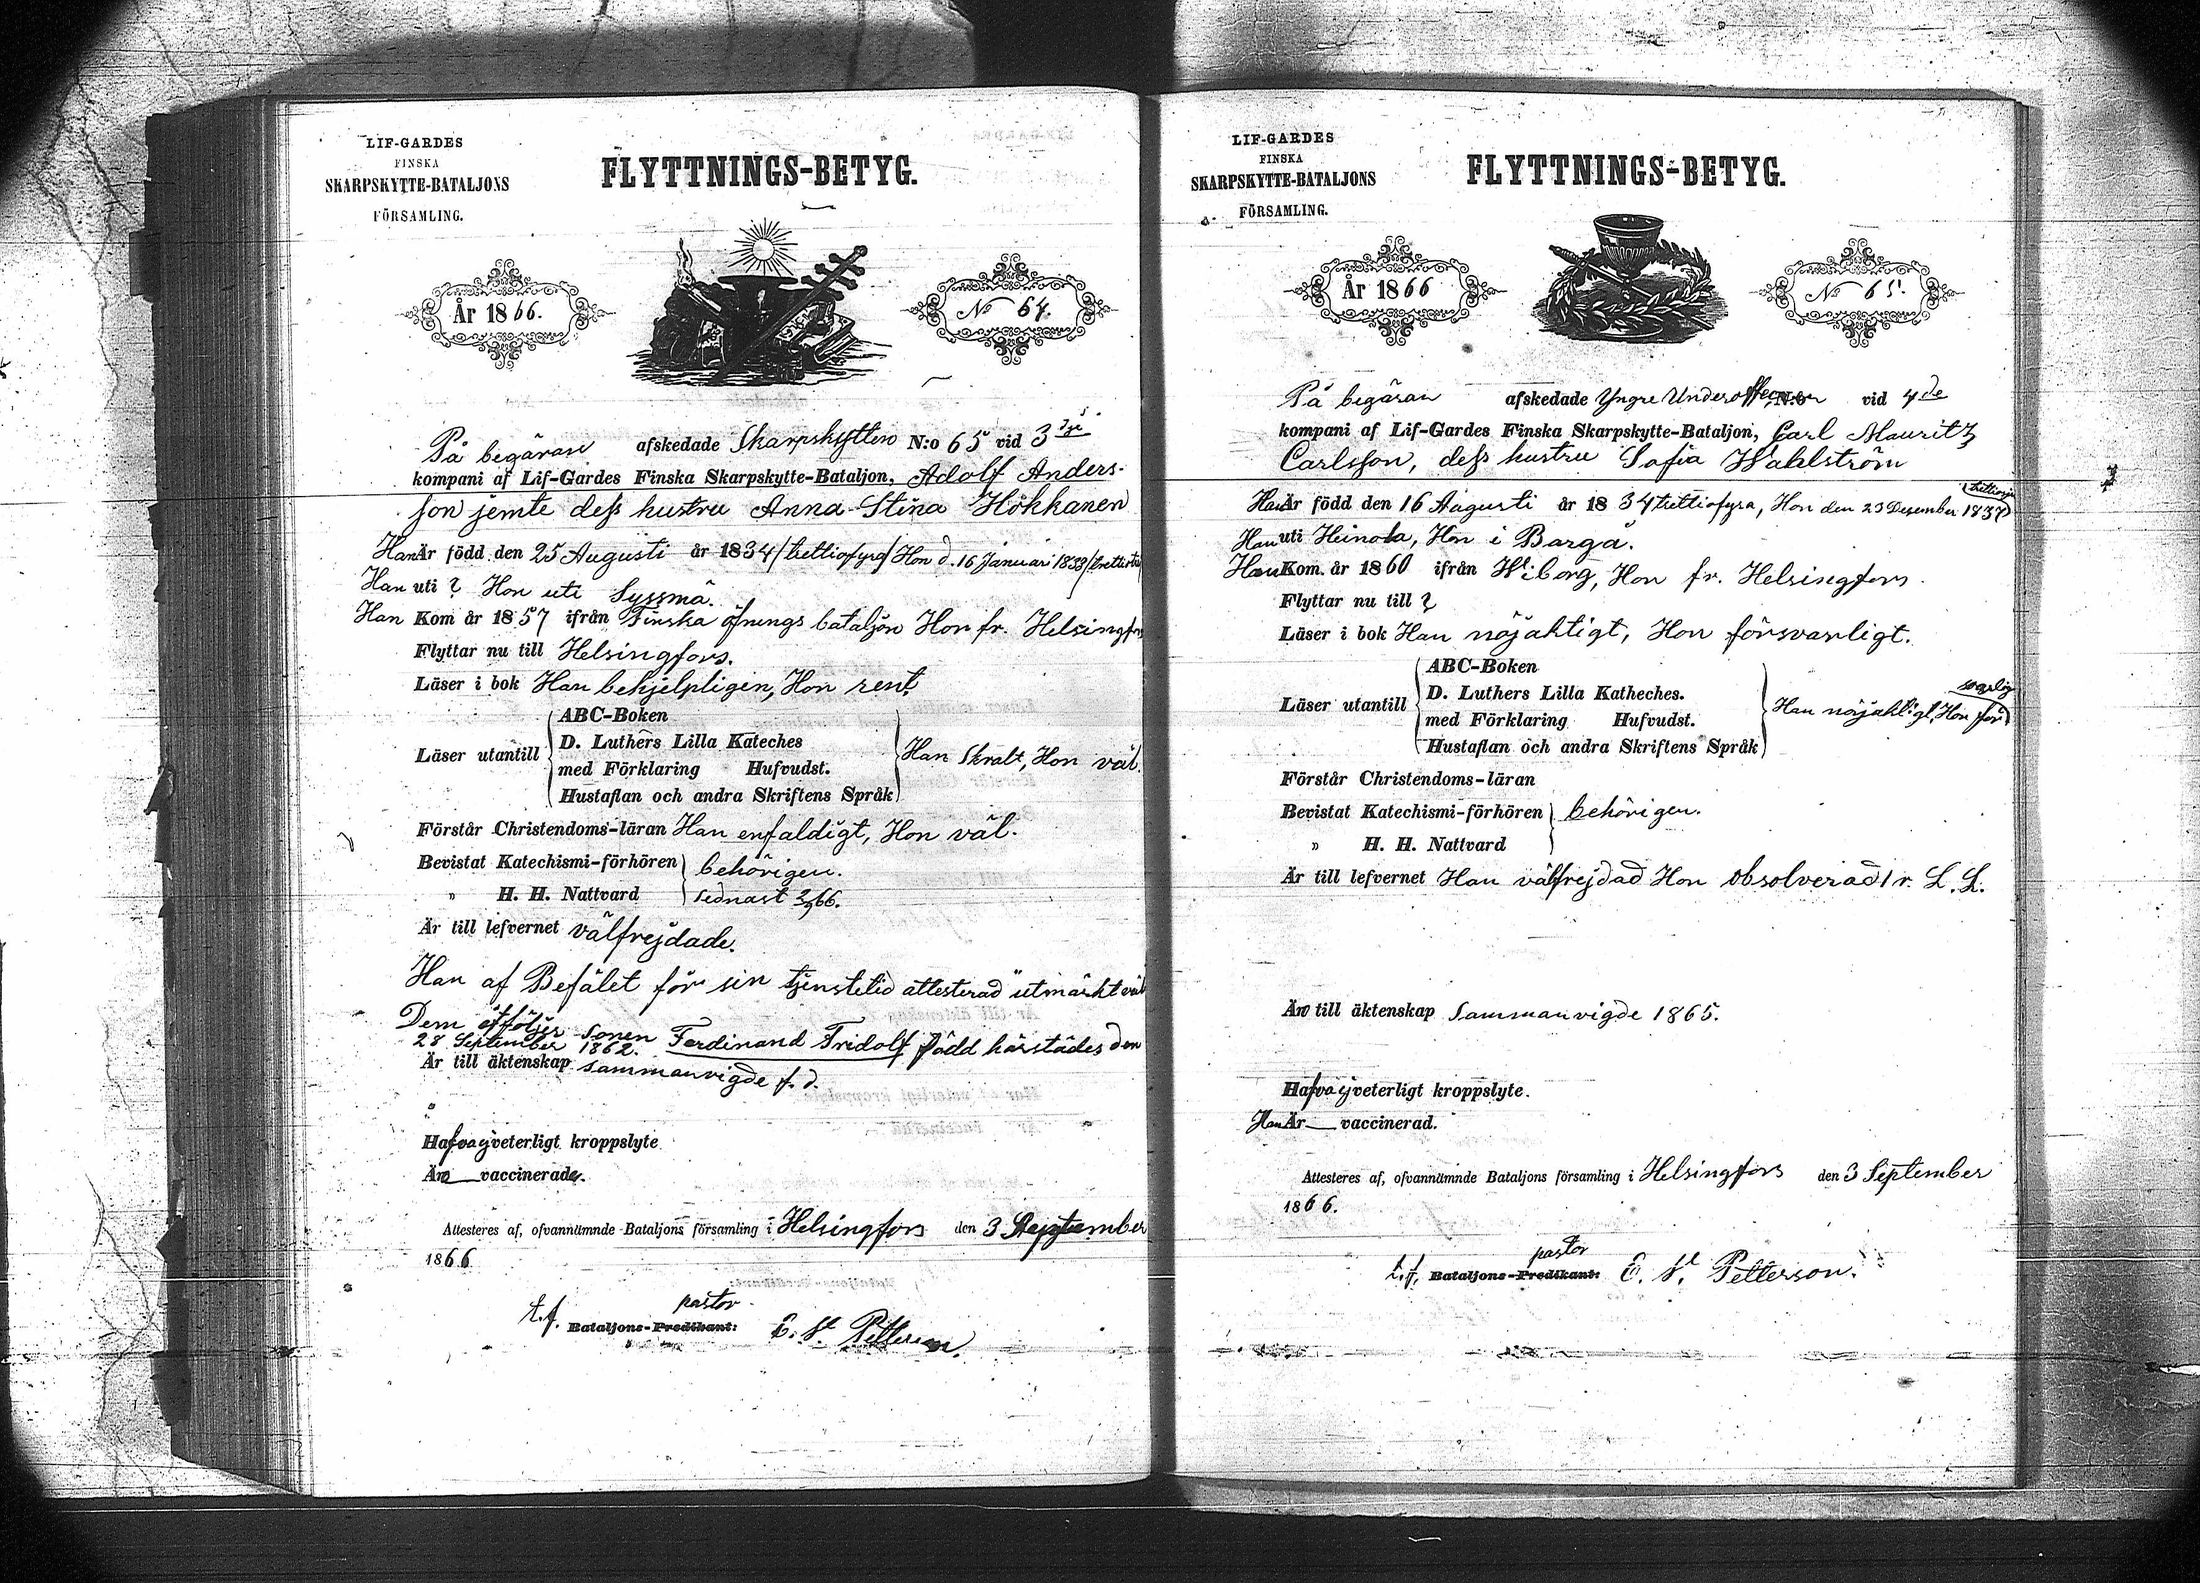 LIF-GARDES
FINSKA
SKARPSKYTTE-BATALJONS
FÖRSAMLING.
FLYTTNINGS-BETYG.
År 1866.
No 64.
På begäran afskedade Skarpskytten N:o 65 vid 3dje
kompani af Lif-Gardes Finska Skarpskytte-Bataljon, Adolf Anders-
son jemte dess hustru Anna Stina Hökkanen
Han Är född den 25 Augusti år 1834 /trettiofyra/ Hon d. 16 Januari 1833
Han uti ? Hon uti Syssmä.
Han Kom år 1857 ifrån Finska öfnings bataljon Hon fr. Helsingfors
Flyttar nu till Helsingfors.
Läser i bok Han behjelpligen, Hon rent
Läser utantill
ABC-Boken
D. Luthers Lilla Kateches
med Förklaring Hufvudst.
Hustaflan och andra Skriftens Språk
Han Skralt, Hon väl.
Förstår Christendoms-läran Han enfaldigt, Hon väl.
Bevistat Katechismi-förhören behörigen.
„ H. H. Nattvard sednast 66.
Är till lefvernet välfrejdade.
Han af Befälet för sin tjenstetid attesterad "utmärkt väl
Dem åtföljer sonen Ferdinand Fridolf född härstädes den
28 September 1862.
Är till äktenskap sammanvigde f. d.
Hafva ej veterligt kroppslyte
Äro vaccinerade.
Attesteres af, ofvannämnde Bataljons församling i Helsingfors den 3 September
1866
t.f. Bataljons-Predikant: pastor E. Petterson.
LIF-GARDES
FINSKA
SKARPSKYTTE-BATALJONS
FÖRSAMLING.
FLYTTNINGS-BETYG.
År 1866
No 65.
På begäran afskedade Yngre Underofficeren N:o vid 4de
kompani af Lif-Gardes Finska Skarpskytte-Bataljon, Carl Mauritz
Carlsson, dess hustru Sofia Wahlström
Han Är född den 16 Augusti år 1834 trettiofyra, Hon den 23 Desember 1837
Han uti Heinola, Hon i Borgå.
Han Kom. år 1860 ifrån Wiborg, Hon fr. Helsingfors.
Flyttar nu till ?
Läser i bok Han nöjaktigt, Hon försvarligt.
Läser utantill
ABC-Boken
D. Luthers Lilla Katheches.
med Förklaring Hufvudst.
Hustaflan och andra Skriftens Språk
Han nöjaktigt, Hon försvarlig
Förstår Christendoms-läran
Bevistat Katechismi-förhören behörigen.
„ H. H. Nattvard
Är till lefvernet Han välfrejdad Hon obsolverad 1 r. L. L.
Äro till äktenskap Sammanvigde 1865.
Hafva ej veterligt kroppslyte.
Han Är vaccinerad.
Attesteres af, ofvannämnde Bataljons församling i Helsingfors den 3 September
1866.
t.f. Bataljons-Predikant: pastor E. Petterson.